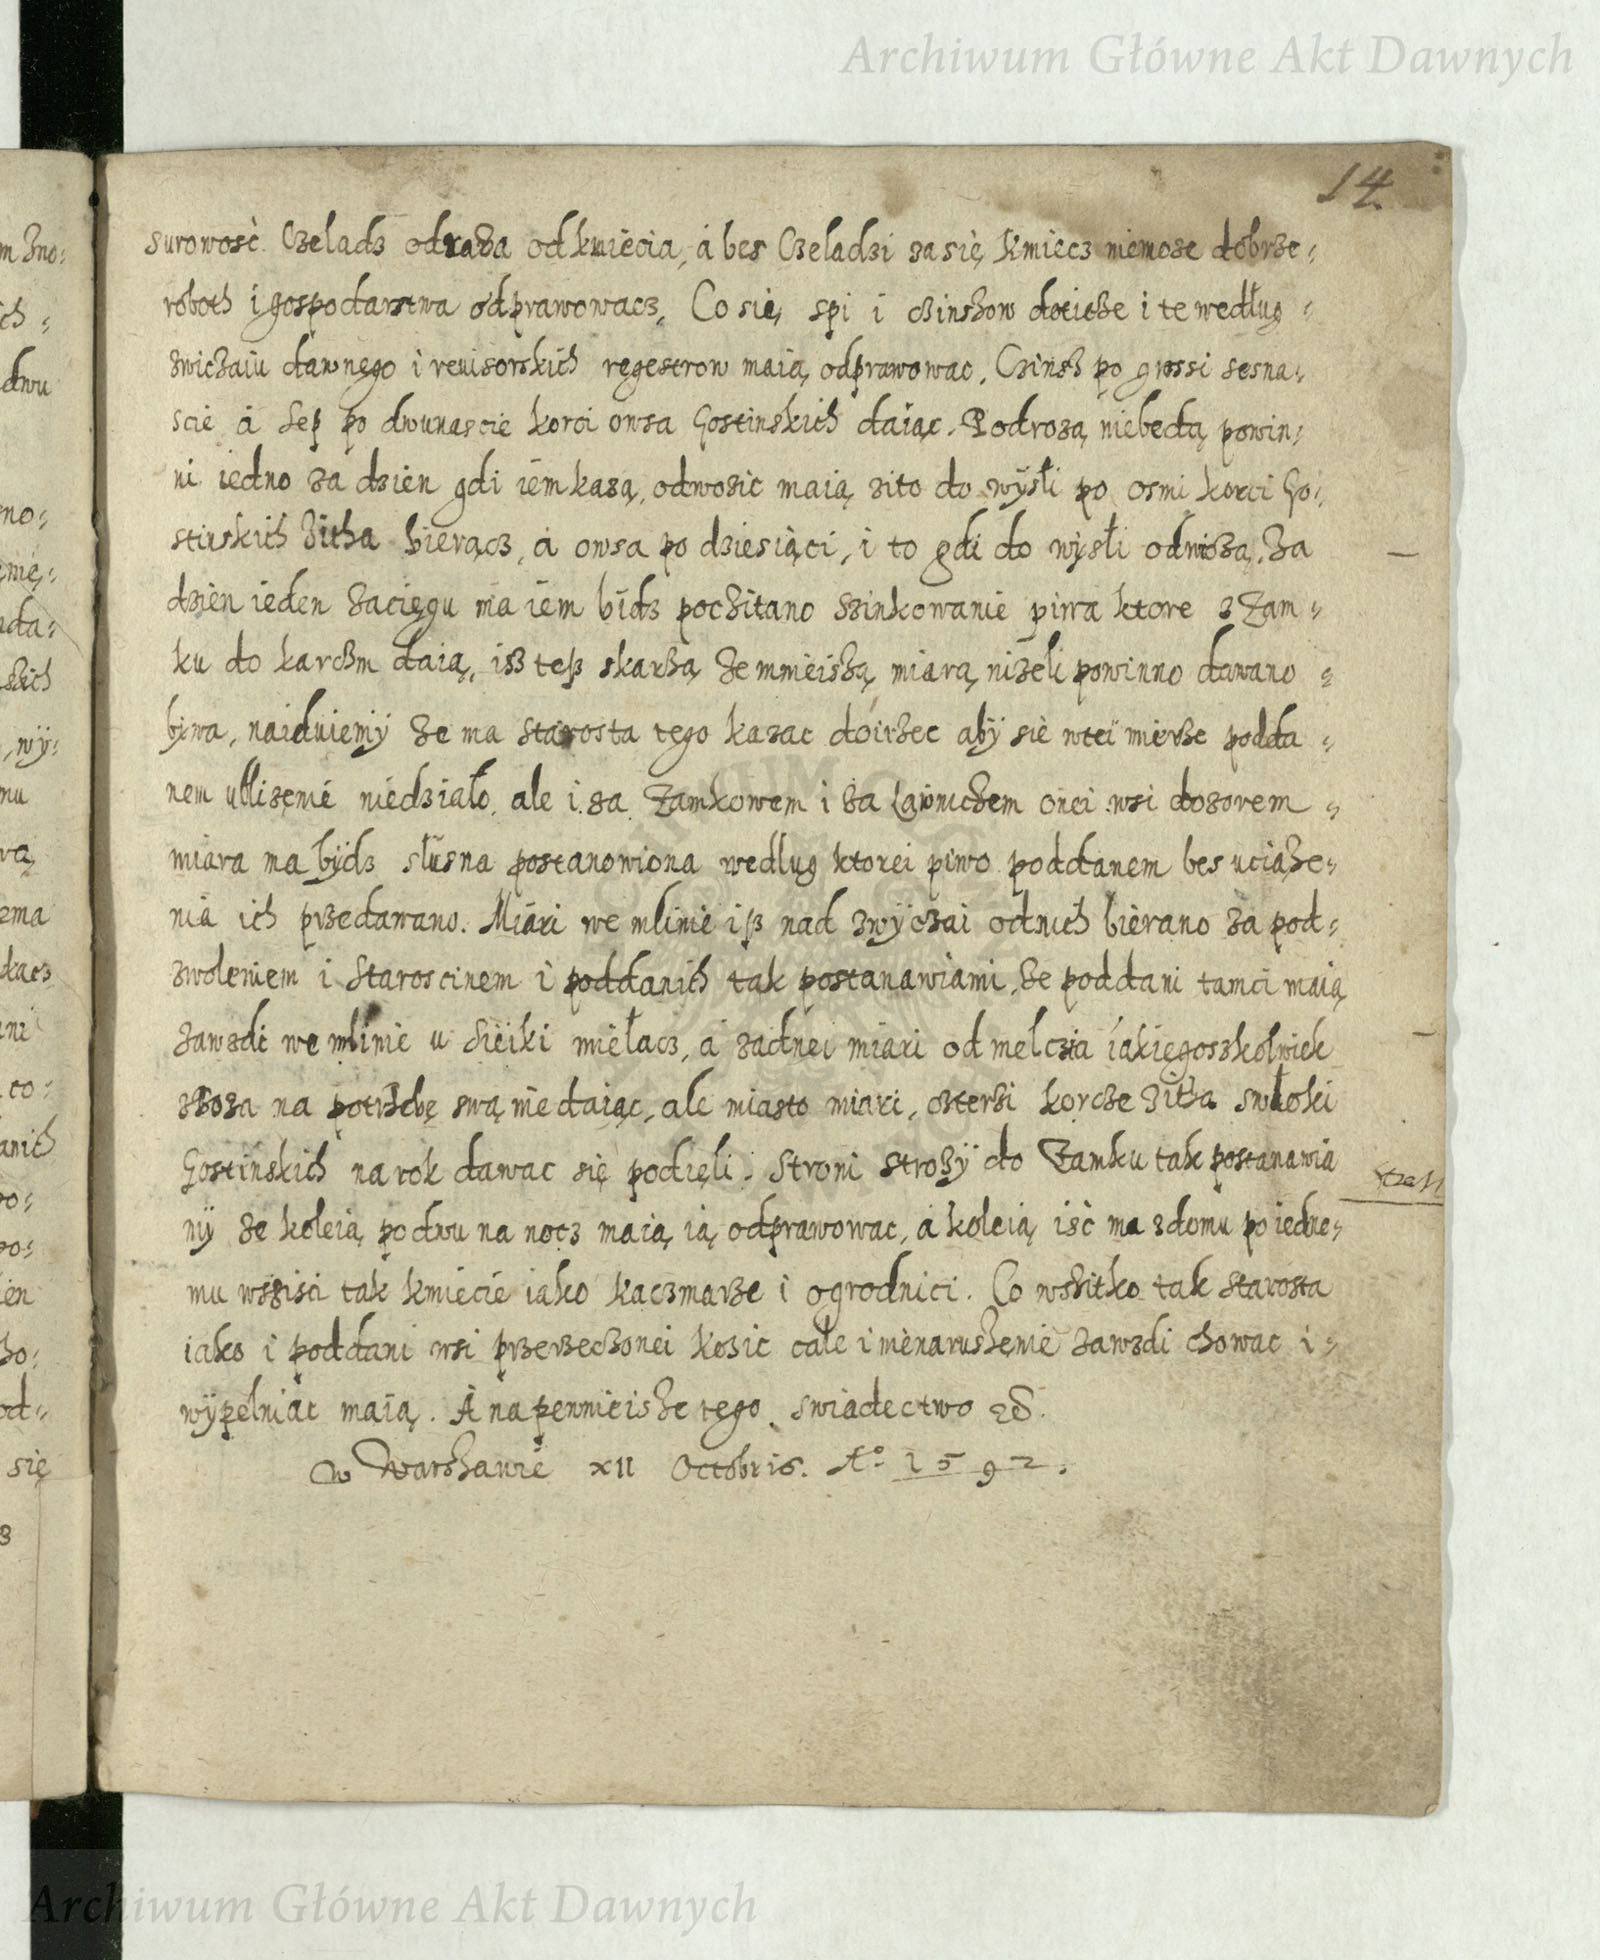 Archiwum Główne Akt Dawnych
14.
surowosc Czeladz odraza od kmiecia, a bes Czeladzi zasię Kmiecz niemoze dobrze=
roboth i gospodarstwa odprawowacz. Co się spi i czinszow doticze i te według =
zwiczaiu dawnego i reuisorskich regestrow maią odprawowac. Czinsz po grossi sesna=
scie a Sep po dwunascie korci owsa Gostinskich daiąc. Podrozą niebedą powin=
ni iedno za dzien gdi iem kazą, odwozic maią zito do wÿsłi po osmi korci Go=
stinskich Zitha bierącz, a owsa po dziesiąci, i to gdi do wÿsłi odwiozą. Za
dzien ieden Zacięgu ma iem bidz poczitano Szinkowanie piwa ktore z Zam=
ku do karczm daią, isz tesz skarzą ze mnieiszą miarą nizeli powinno dawano =
bywa, naiduiemÿ ze ma starosta tego kazac doirzec abÿ się wtei mierze podda =
nem ublizenie niedziało, ale i za Zamkowem i za Ławniczem onei wsi dozorem =
miara ma bÿdz słusna postanowiona wedlug ktorei piwo poddanem bes uciąze=
nia ich przedawano. Miari we mlinie isz nad zwÿczai odnich bierano za pod=
zwoleniem i Staroscinem i poddanich tak postanawiami, ze poddani tamci maią
zawzdi we mlinie u Sieiki miełacz, a zadnei miari od melcia iakiegoszkolwiek
zboza na potrzebę swą nie daiąc, ale miasto miari, czterzi korcze Zitha swłoki
Gostinskich na rok dawac się podięli. Stroni strozÿ do Zamku tak postanawia
mÿ ze koleią po dwu na nocz maią ią odprawowac, a koleią isc ma zdomu po iedne=
mu wszisci tak kmiecie iako kaczmarze i ogrodnici. Co wszitko tak starosta
iako i poddani wsi przerzeczonei Kozic cale i nienaruszenie zawzdi chowac i =
wÿpelniac maią. A na pewnieisze tego swiadectwo
w Warszawie XII Octobris. Aº 1592.
Archiwum Główne Akt Dawnych